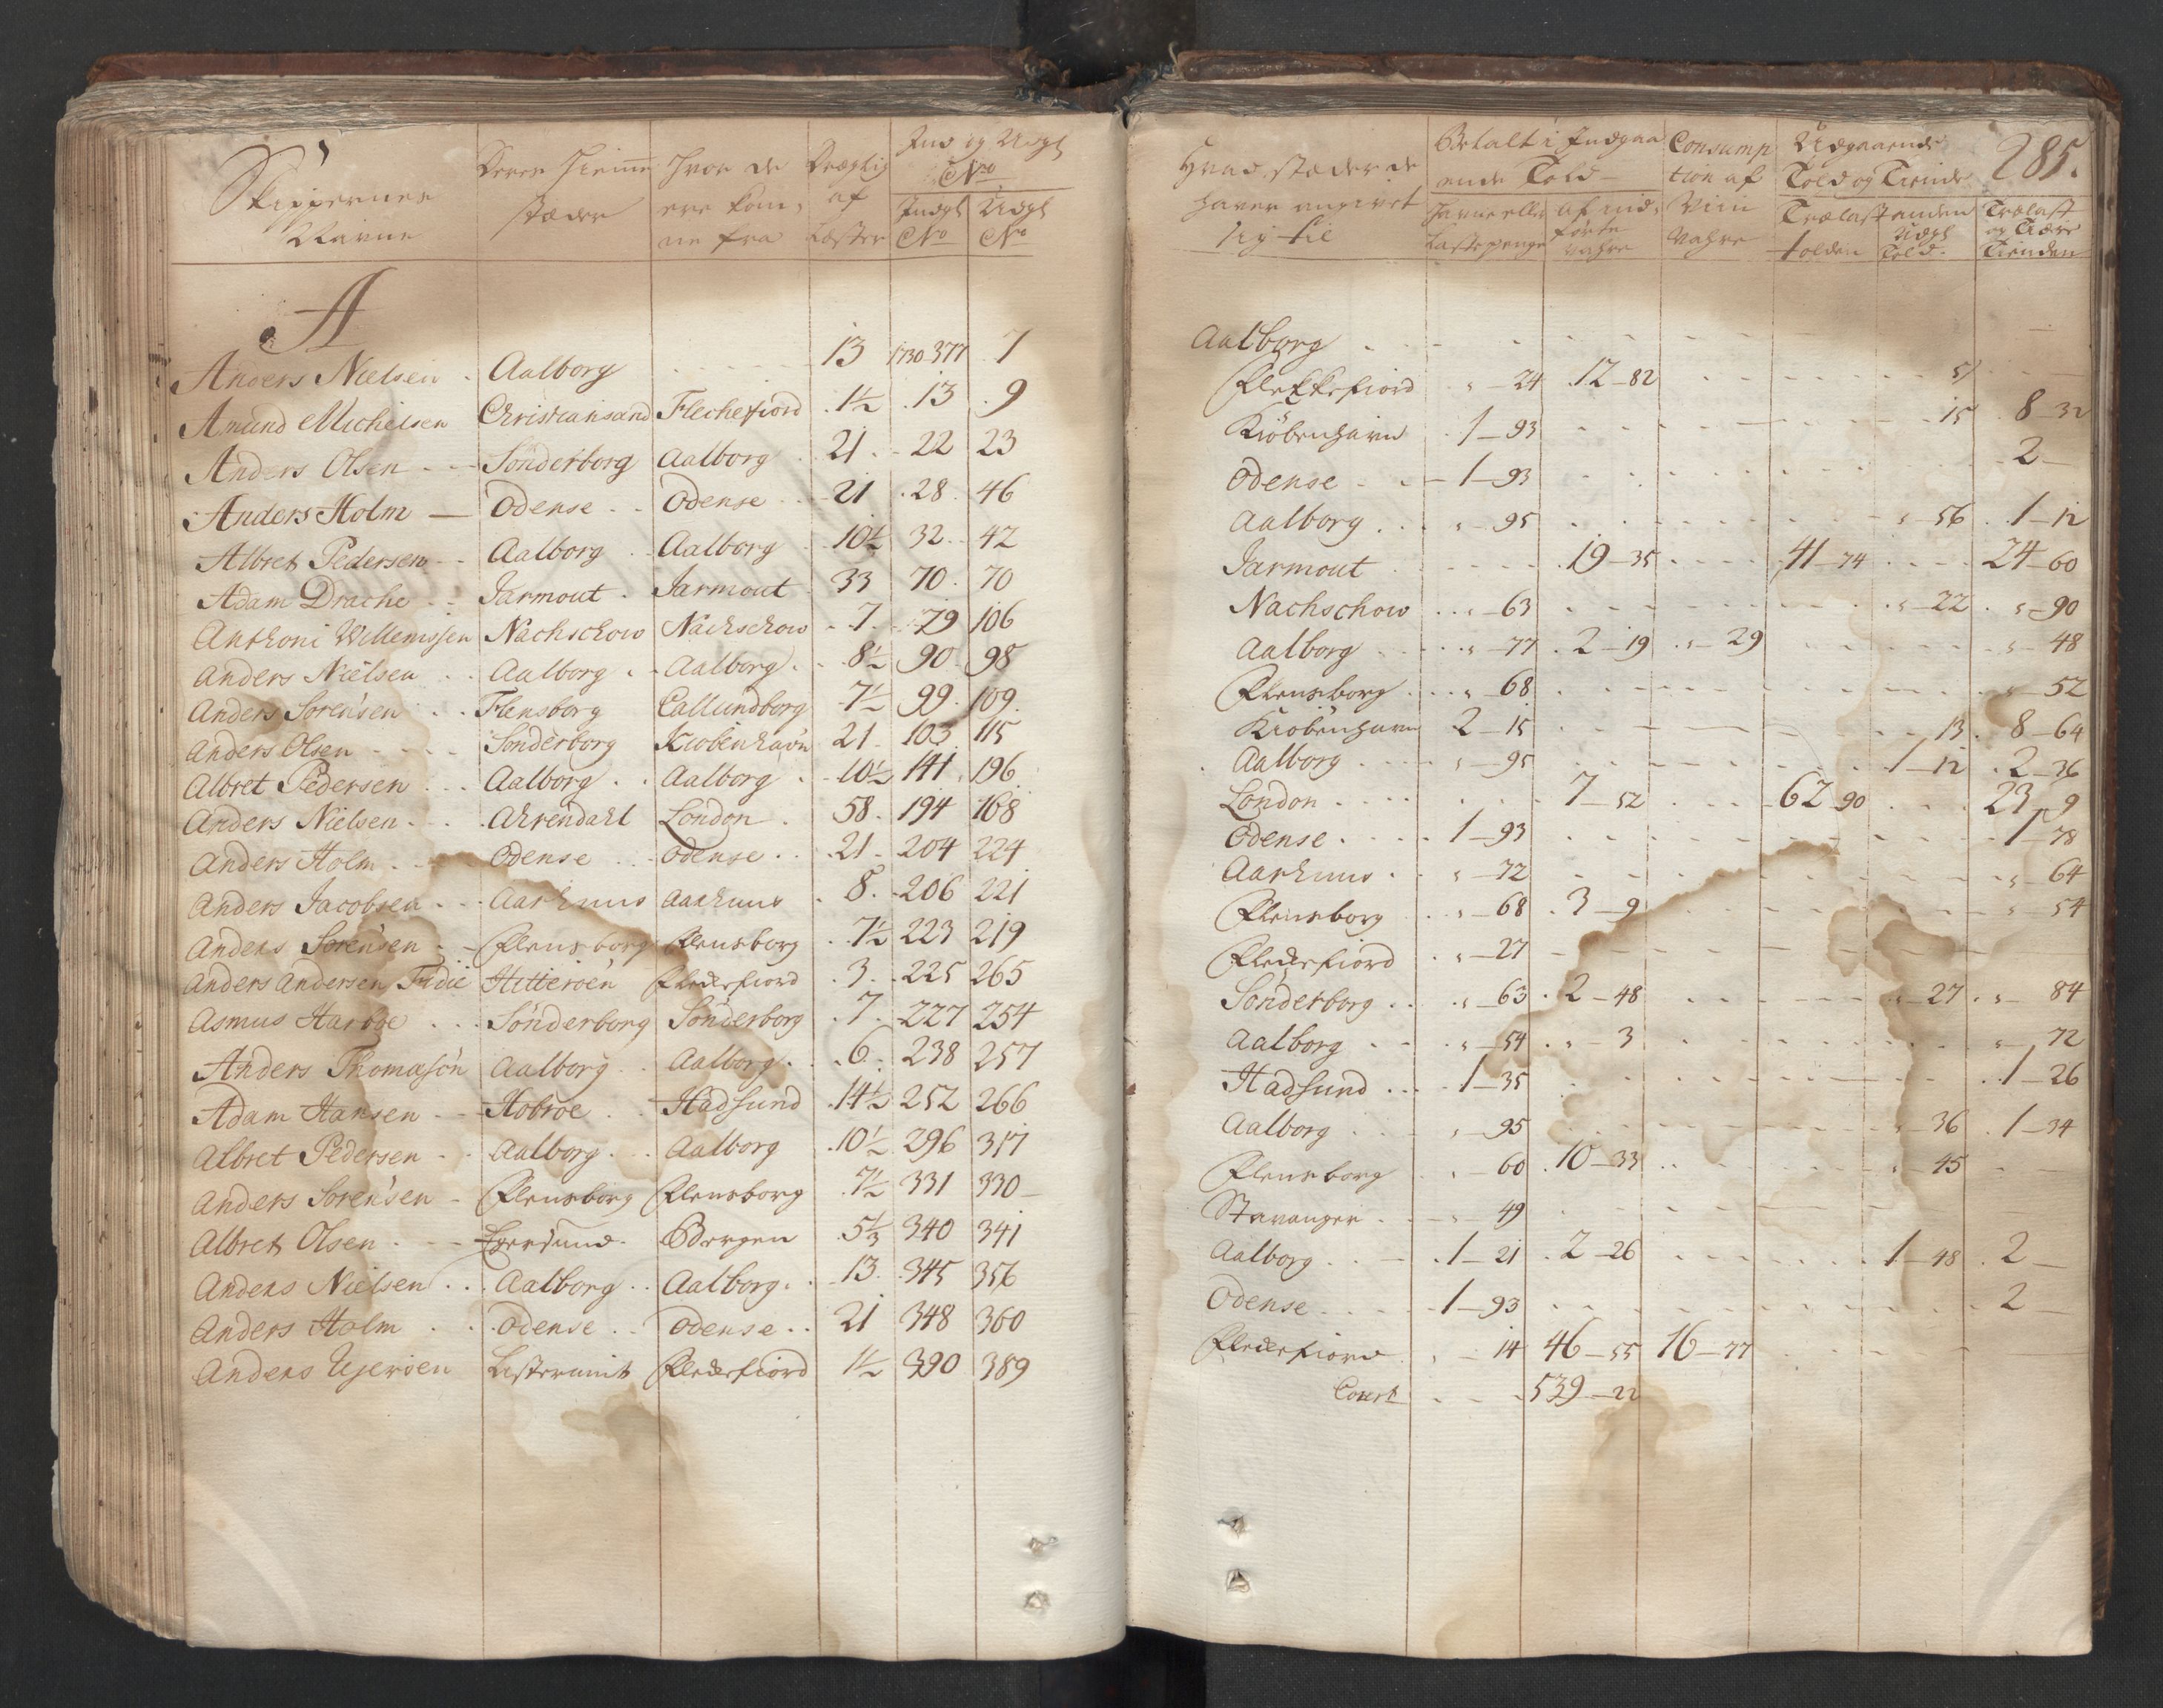 Skippernes Deres Hiemme Hvor de Drægtig Ind og Udgl
Navne stæder ere kom, af No
ne fra Læster Indgl No Udgl No
A
Anders Nielsen . Aalborg . . . . . 13 1730 377 7
Amund Michelsen Christiansand Flechefiord . 1½ . 13 . 9
Anders Olsen - - - Sönderborg Aalborg . 21 . - 22 23
Anders Holm — Odense . . Odense . . 21 . 28 . 46
Albret Pedersen - - Aalborg . . Aalborg . 10½ 32 . . 42
Adam Drache . - Jarmout . Jarmout 33 70 . 70
Anthoni Willemssen Nachschow Nachschow - 7 . 79 106
Anders Nielsen . . Aalborg . - Aalborg . . 8½ 90 . 98
Anders Sörensen . . Flensborg Callundborg 7½ 99 . 109 .
Anders Olsen - - - - Sönderborg Kiöbenhavn 21 - 103 115
Albret Pedersen . . . Aalborg . . Aalborg . . 10½ 141 . 196
Anders Nielsen . . . Ahrendahl London . 58 . 194 168
Anders Holm . . . Odense . . Odense . . . 21 - 204 224
Anders Jacobsen - - - Aarhuus Aarhuus . 8 . - 206 221
Anders Sörensen - - Flensborg Flensborg . 7½ 223 219
Anders Andersen Hitteröen Flechefiord . 3 . - 225 265
Asmus . . . Sönderborg Sönderborg . 7 . - 227 254
Anders Thomæsön Aalborg . . Aalborg . . 6 . 238 257
Adam Hansen - - - Hobroe . . Hadsund . 14½ 252 266
Albret Pedersen - . Aalborg . . . Aalborg . 10½ 296 317
Anders Sörensen - Flensborg Flensborg . 7½ 331 330 -
Albret Olsen . - - Egersund . Bergen 5⅓ 340 341
Anders Nielsen . . . Aalborg . . Aalborg . . 13 . 345 356
Anders Holm . . . Odense . . Odense . . 21 348 360
Anders Ujeröen Listerunit Flechefiord 1½ 390 389
Hvad stæder de Betalt i Indgaa Consump Udgaaende 285.
haver angivet ende Told tion af Told og Tiende
sig til Havne eller Lastepenge af ind, förte vahre Viin Vahre Trælast tolden anden Udgl Told . Trælast og Tiære Tienden
Aalborg . - - - - - -
Flekkefiord . „ — 24 . 12 — 82 - - - - - - 5)
Kiöbenhavn . 1 — 93 - - - - - 15 . 8 — 32
Odense . . - 1 — 93 - - - - - 2 —
Aalborg . . . „ — 95 . . . . . „ — 56 . 1 — 12
Jarmout - - - - - . 19 — 35 . . . . 41 — 74 . . . . 24 — 60
Nachschow . . „ — 63 - - - - - . „ — 22 . „ — 90
Aalborg . . . . „ — 77 . 2 — 19 . „ — 29 - - - - . „ — 48
Flensborg . . . „ — 68 - - - - - - - „ — 52
Kiöbenhavn 2 — 15 - - - - - 13 . 8 — 64
Aalborg . . . „ — 95 - - - - - 1 — 12 . 2 — 36
London . . . . . . . 7 — 52 . . . 62 — 90 . . . 23 — 9
Odense . . . . 1 — 93 - - - - - - 1 — 78
Aarhuus . . „ — 72 - - - - - - „ — 64
Flensborg . . „ — 68 . 3 — 9 - - - - - „ — 54
Flechefiord . „ — 27 - - - - - - -
Sönderborg . . . „ — 63 . 2 — 48 - - - - - „ — 27 . „ — 84
Aalborg - - . „ — 54 . „ — 3 - - - - - „ — 72
Hadsund . . . 1 — 35 - - - - - . 1 — 26
Aalborg . . . „ — 95 - - - - - „ — 36 . 1 — 34
Flensborg . „ — 60 . 10 — 33 . . - - - „ — 45 -
Stavanger . - „ 49 - - - - - -
Aalborg . . - . 1 — 21 . 2 — 26 - - - - - 1 — 48 . 2 —
Odense . . . . 1 — 93 - - - - - - 2 —
Flechefiord . „ — 14 46 — 55 16 — 77 - - - -
- - . 539 — 22